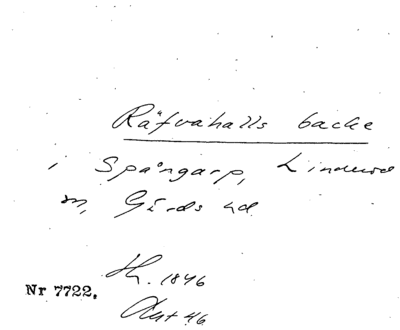 Räfvahalls backe
i Spångarp, Linderöd
sn, Gärds hd
Nr 7722.
Th. 1846
Aut 46